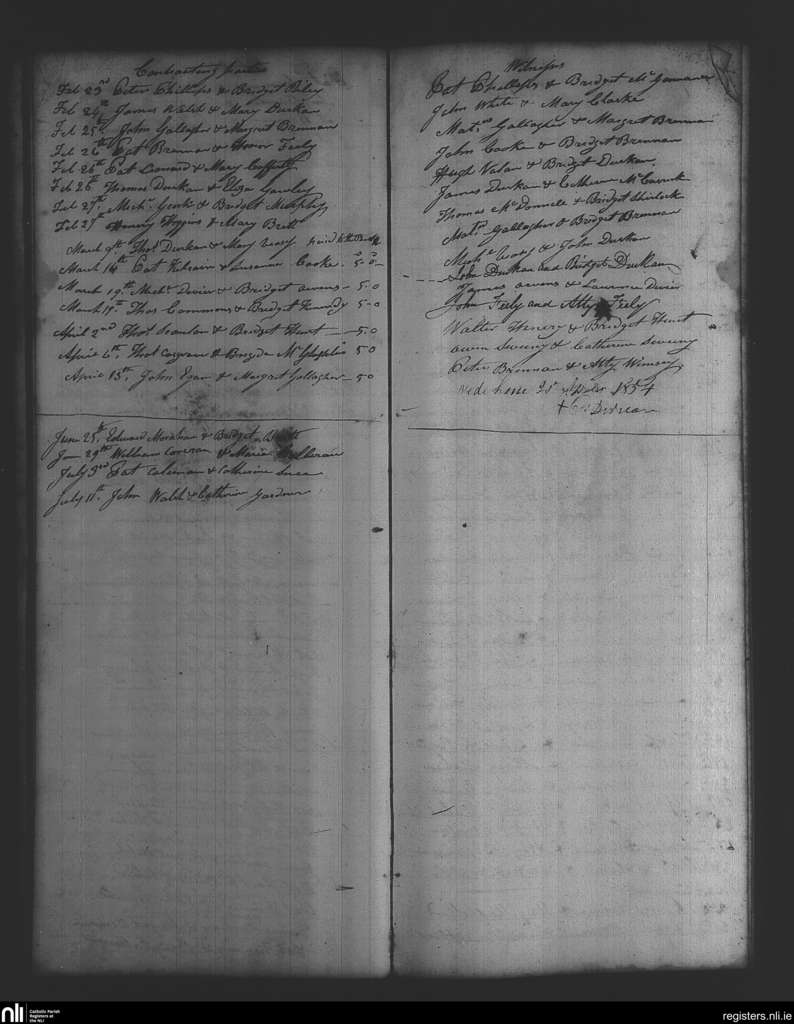 Contracting parties
Feb 23rd Peter Phillips & Bridget Riley
Feb 24th James Walsh & Mary Durkan
Feb 25. John Gallagher & Margret Brennan
Feb 26th Pat Brennan & Honor Feely
Feb 26th Pat Leonard & Mary
Feb 26th Thomas Durkan & Eliza Gawley
Feb 27th Michl. & Bridget Murphy
Feb 27th Henry Higgins & Mary Brett
March 9th Thos Durkan & Mary paid
March 14th Pat Kilrain & Susanna Cooke. 5-0
March 19th Michl. Devier & Bridget Owens - 5-0
March 19th. Thos Commons & Bridget Kennedy 5-0
April 2nd Thos Scanlon & Bridget Hunt - 5-0
April 6th. Thos & Mc 50
April 15th. John Egan & Margret Gallagher - 50
June 25th Edward & Bridget
Jun 29th William Corcoran & Maria
July 3rd Pat Coleman & Catherine
July 11th. John Walsh & Catherine Gardner
Witnesses
Pat Phillips & Bridget Mc
John White & Mary Clarke
Gallagher & Margret Brennan
John Cooke & Bridget Brennan
Hugh Nolan & Bridget Durkan
James Durkan & Catherine Mc
Thomas Mc Donnell & Bridget Sherlock
Gallagher & Bridget Brennan
& John Durkan
John Durkan and Bridget Durkan
James Owens & Laurence Devier
John Feely and Atty Feely
Walter Henery & Bridget Hunt
Owen Sweeny & Catherine Sweeny
Peter Brennan & Atty
1854
nli
Catholic Parish
Registers at
the NLI
registers.nli.ie